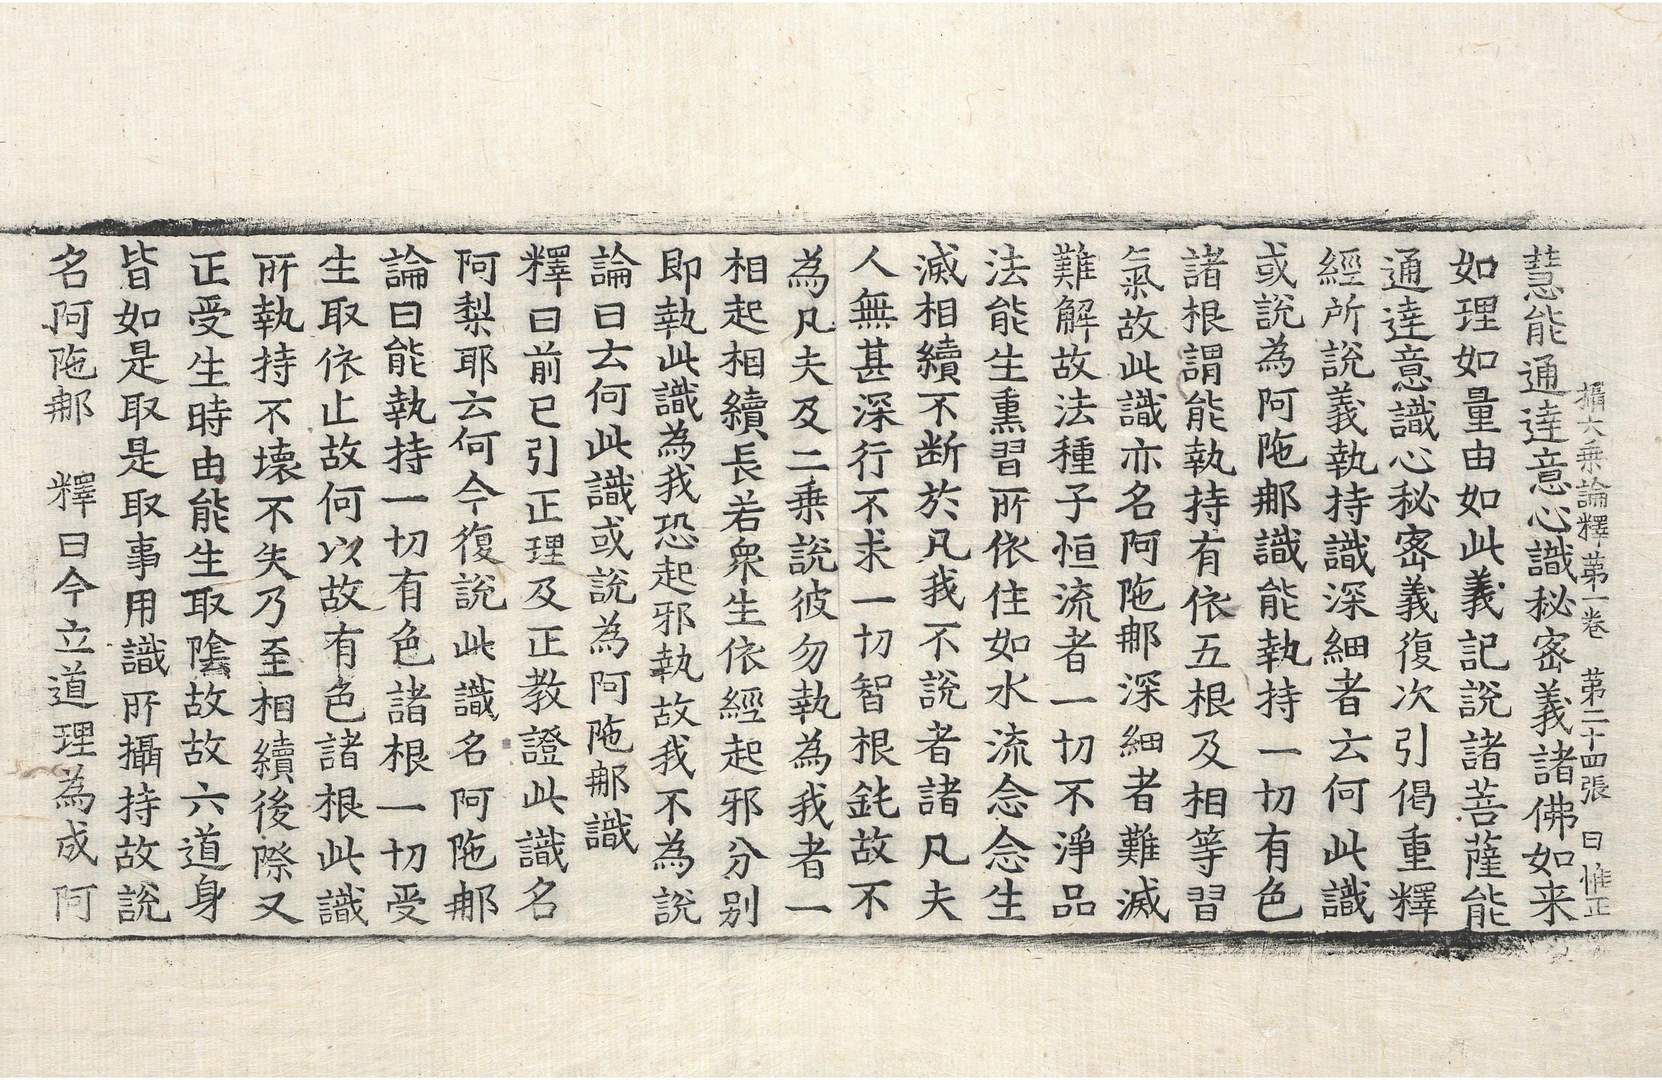 攝大乗論釋第一卷　第二十四張　曰　惟正
慧能通達意心識秘密義諸佛如来
如理如量由如此義記說諸菩薩能
通達意識心秘密義復次引偈重釋
經所說義執持識深細者云何此識
或說為阿陁那識能執持一切有色
諸根謂能執持有依五根及相等習
氣故此識亦名阿陁那深細者難滅
難解故法種子恒流者一切不淨品
法能生熏習所依住如水流念念生
滅相續不断於凡我不說者諸凡夫
人無甚深行不求一切智根鈍故不
為凡夫及二乗說彼勿執為我者一
相起相續長若衆生依經起邪分别
即執此識為我恐起邪執故我不為說
論曰云何此識或說為阿陁那識
釋曰前已引正理及正教證此識名
阿梨耶云何今復說此識名阿陁那
論曰能執持一切有色諸根一切受
生取依止故何以故有色諸根此識
所執持不壞不失乃至相續後際又
正受生時由能生取陰故故六道身
皆如是取是取事用識所攝持故說
名阿陁那　釋曰今立道理為成阿